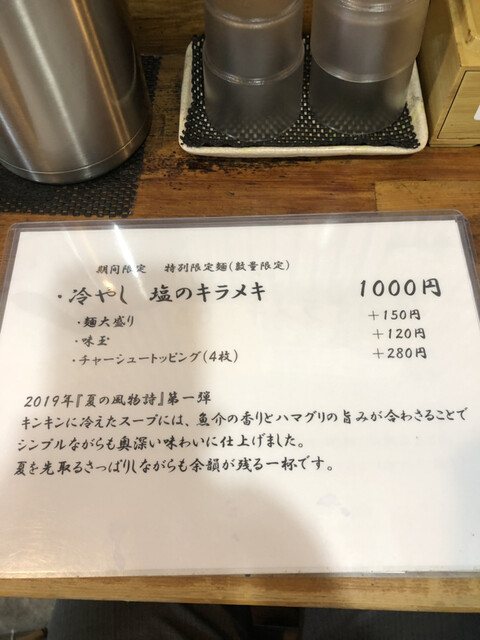 期間限定　特別限定麺(数量限定)
・冷やし　塩のキラメキ　1000円
・麺大盛り　＋150円
・味玉　＋120円
・チャーシュートッピング(4枚)　＋280円
2019年『夏の風物詩』第一弾
キンキンに冷えたスープには、魚介の香りとハマグリの旨みが合わさることで
シンプルながらも奥深い味わいに仕上げました。
夏を先取るさっぱりしながらも余韻が残る一杯です。